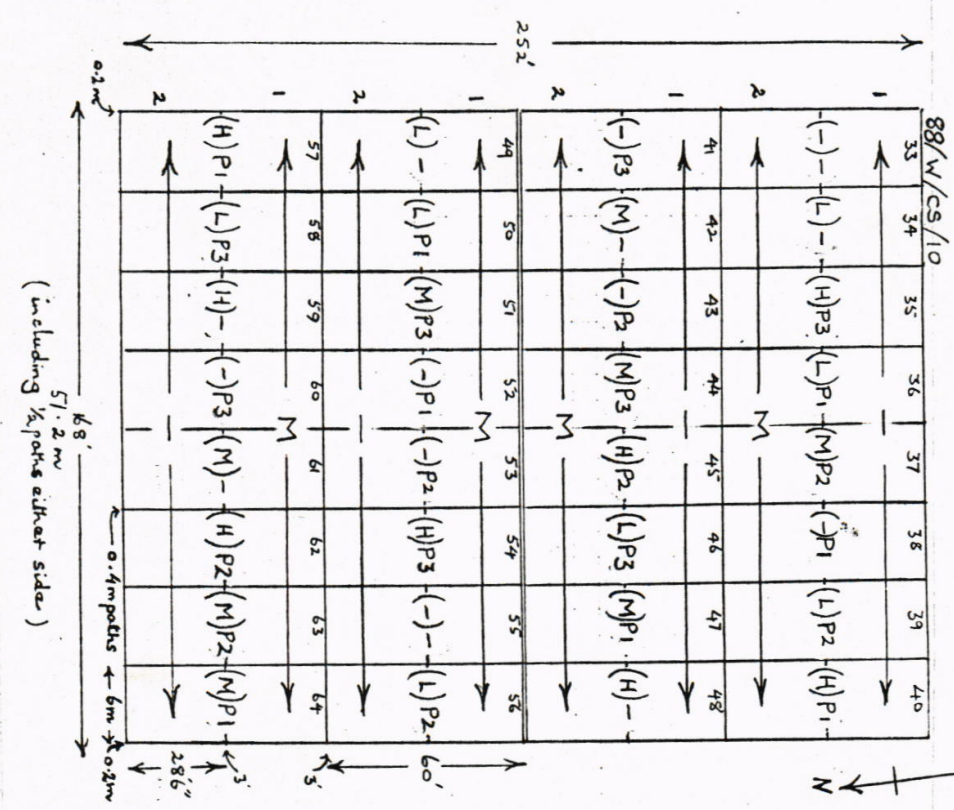 88/W/CS/10
252'
1 2 1 2 1 2 1 2
33 34 35 36 37 38 39 40
(-) - (L) - (H)P3 (L)P1 (M)P2 (-)P1 (L)P2 (H)P1
M
41 42 43 44 45 46 47 48
(-)P3 (M) - (-)P2 (M)P3 (H)P2 (L)P3 (M)P1 (H) -
M
49 50 51 52 53 54 55 56
M
(L) - (L)P1 (M)P3 (-)P1 (-)P2 (H)P3 (-) - (L)P2
57 58 59 60 61 62 63 64
M
(H)P1 (L)P3 (H) - (-)P3 (M) - (H)P2 (M)P2 (M)P1
0.2m
168'
51.2 m
(including ½ paths either side)
0.4m paths
6m
0.2m
28'6"
3'
3'
60'
N